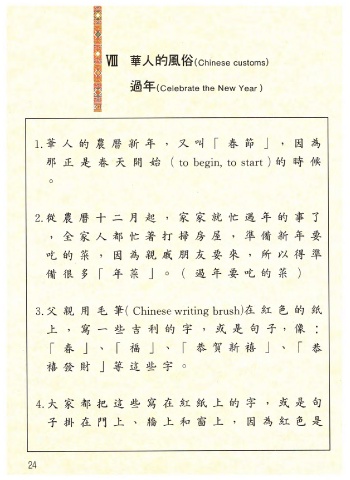 Ⅷ 華人的風俗(Chinese customs)
過年(Celebrate the New Year)
1.華人的農曆新年,又叫「春節」,因為
那正是春天開始(to begin, to start)的時候
。
2.從農曆十二月起,家家就忙過年的事了
,全家人都忙著打掃房屋,準備新年要
吃的菜,因為親戚朋友要來,所以得準
備很多「年菜」。(過年要吃的菜)
3.父親用毛筆(Chinese writing brush)在紅色的紙
上,寫一些吉利的字,或是句子,像:
「春」、「福」、「恭賀新禧」、「恭
禧發財」等這些字。
4.大家都把這些寫在紅紙上的字,或是句
子掛在門上、牆上和窗上,因為紅色是
24